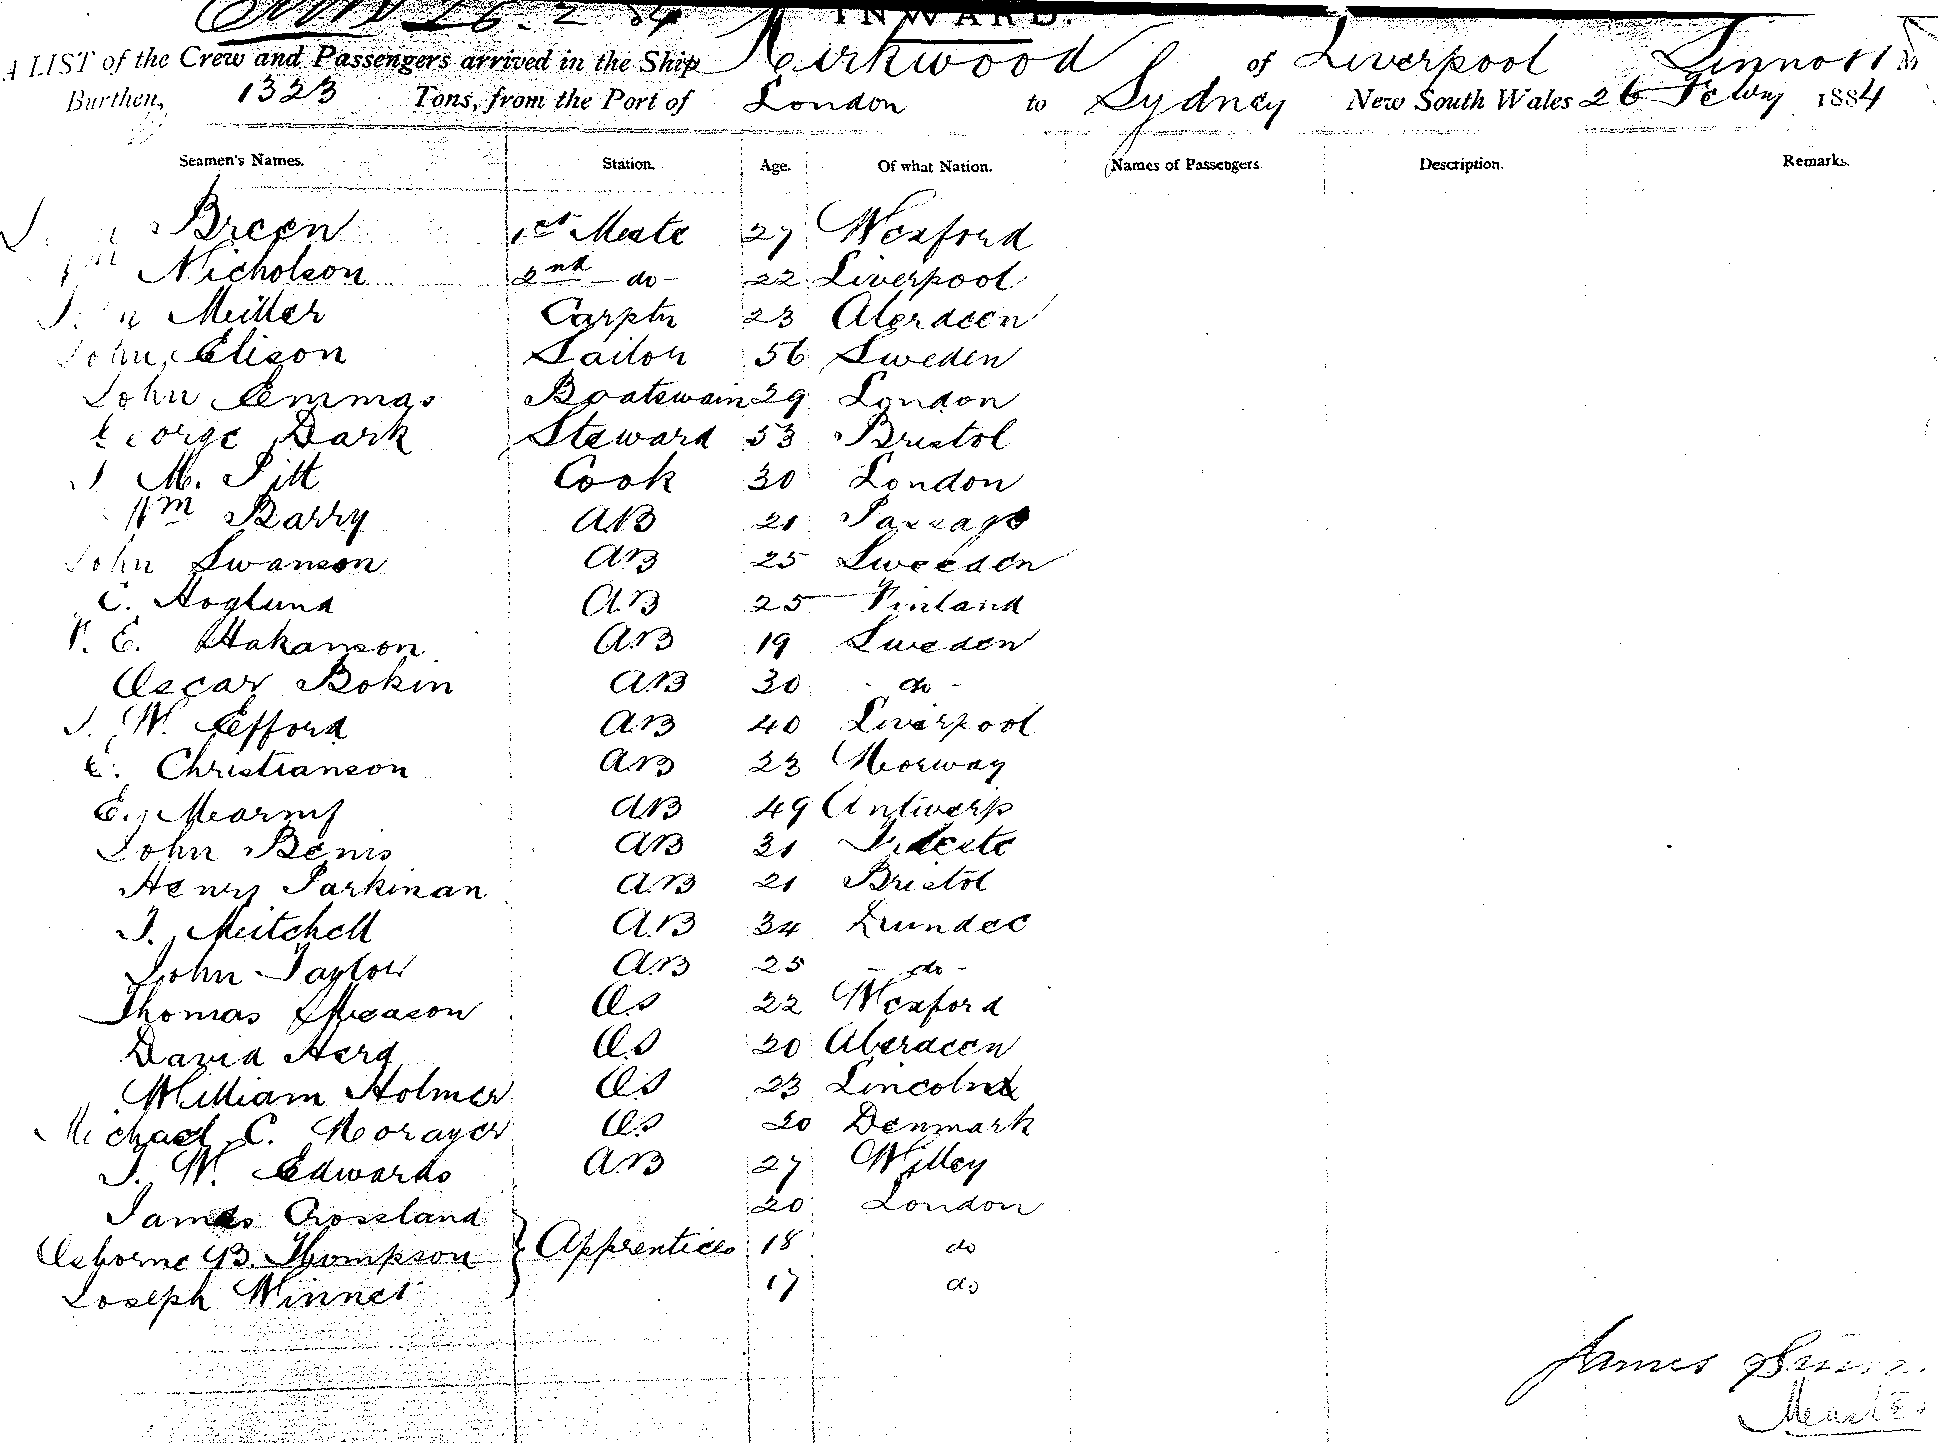 26. 2 84 INWARD.
A LIST of the Crew and Passengers arrived in the Ship Kirkwood of Liverpool Sinnott
Burthen, 1323 Tons, from the Port of London to Sydney New South Wales 26 1884
Seamen's Names. Station. Age. Of what Nation. Names of Passengers Description. Remarks.
Breen 1st Mate 27 Wexford
Nicholson 2nd do 22 Liverpool
Miller Carptr 23 Aberdeen
John Elison Sailor 56 Sweden
John Emmas Boatswain 29 London
George Dark Steward 53 Bristol
M. Pitt Cook 30 London
Wm Barry AB 21 Passage
John Swanson AB 25 Sweeden
C. Hoglund AB 25 Finland
P. E. Hakanson AB 19 Sweden
Oscar Bokin AB 30 - do -
J. W. Efford AB 40 Liverpool
C. Christianson AB 23 Norway
E. AB 49 Antwerp
John Benis AB 31 Trieste
Henry Parkman AB 21 Bristol
J. Mitchell AB 34 Dundee
John Taylor AB 25 - do -
Thomas Meason OS 22 Wexford
David Herd OS 20 Aberdeen
William Holmes OS 23 Lincoln
Michael C. OS 20 Denmark
J. W. Edwards AB 27 Willey
James Crossland 20 London
Osborne B. Thompson } Apprentices 18 do
Joseph Winnet 17 do
James
Master